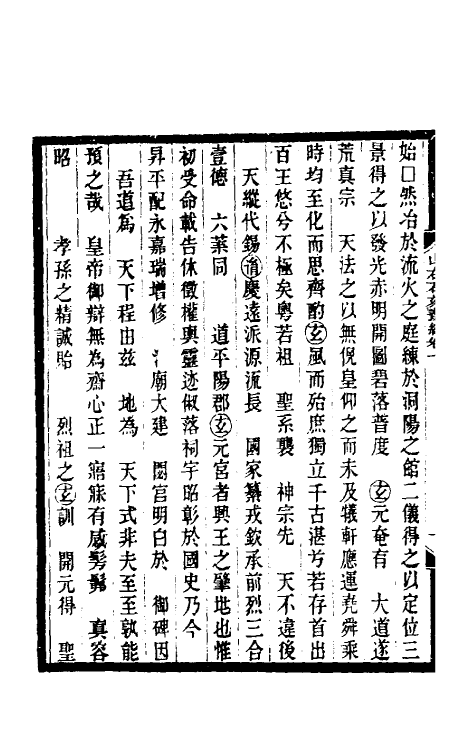 始囗然冶於流火之庭練於洞陽之館二儀得之以定位三
景得之以發光赤明開圖碧落普度　玄元奄有　大道遂
荒真宗　天法之以無倪皇仰之而未及犧軒應運堯舜乘
時均至化而思齊酌玄風而殆庶獨立千古湛兮若存首出
百王悠兮不極矣粵若祖　聖系襲　神宗先　天不違後
天縱代錫慶遠派源流長　國家纂戎欽承前烈三合
壹德　六葉同　道平陽郡玄元宮者興王之肇地也惟
初受命載告休徵權輿靈迹俶落祠宇昭彰於國史乃今
昇平配永嘉瑞增修　廟大建　閟宮明白於　御碑因
吾道為　天下程由茲　地為　天下式非夫至至孰能
預之哉　皇帝御辯無為齋心正一寤寐有感髣髴　真容
昭　孝孫之精誠貽　烈祖之玄訓　開元得　聖
山右石刻叢編卷十